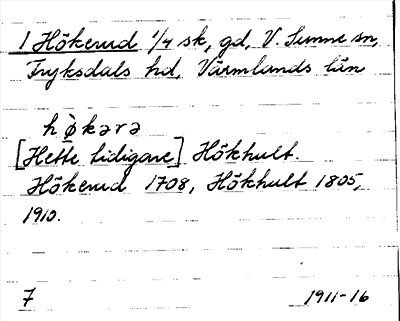 1 Hökerud 1/4 sk, gd, V. Sunne sn,
Fryksdals hd, Värmlands län
hö̀kərə
[Hette tidigare] Hökhult.
Hökerud 1708, Hökhult 1805,
1910.
7 1911-16